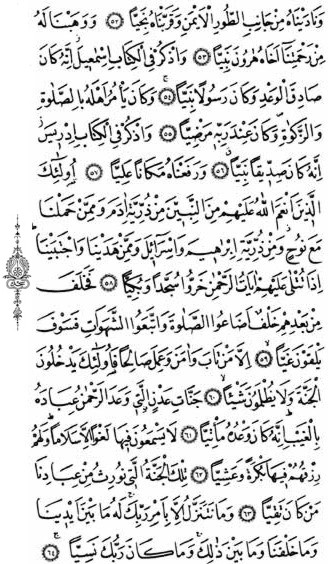 وَنَادَيْنَاهُ مِنْ جَانِبِ الطُّورِ الْاَيْمَنِ وَقَرَّبْنَاهُ نَجِيًّا ﴿٥٢﴾ وَوَهَبْنَا لَهُ
مِنْ رَحْمَتِنَٓا اَخَاهُ هٰرُونَ نَبِيًّا ﴿٥٣﴾ وَاذْكُرْ فِي الْكِتَابِ اِسْمٰعِيلَ اِنَّهُ كَانَ
صَادِقَ الْوَعْدِ وَكَانَ رَسُولًا نَبِيًّا ﴿٥٤﴾ وَكَانَ يَأْمُرُ اَهْلَهُ بِالصَّلٰوةِ
وَالزَّكٰوةِ وَكَانَ عِنْدَ رَبِّهِ مَرْضِيًّا ﴿٥٥﴾ وَاذْكُرْ فِي الْكِتَابِ اِدْرِيسَ
اِنَّهُ كَانَ صِدِّيقًا نَبِيًّا ﴿٥٦﴾ وَرَفَعْنَاهُ مَكَانًا عَلِيًّا ﴿٥٧﴾ اُولٰٓئِكَ
الَّذِينَ اَنْعَمَ اللّٰهُ عَلَيْهِمْ مِنَ النَّبِيِّنَ مِنْ ذُرِّيَّةِ اٰدَمَ وَمِمَّنْ حَمَلْنَا
مَعَ نُوحٍ وَمِنْ ذُرِّيَّةِ اِبْرٰهِيمَ وَاِسْرَٓائِلَ وَمِمَّنْ هَدَيْنَا وَاجْتَبَيْنَا
اِذَا تُتْلٰى عَلَيْهِمْ اٰيَاتُ الرَّحْمٰنِ خَرُّوا سُجَّدًا وَبُكِيًّا ﴿٥٨﴾ فَخَلَفَ
مِنْ بَعْدِهِمْ خَلْفٌ اَضَاعُوا الصَّلٰوةَ وَاتَّبَعُوا الشَّهَوَاتِ فَسَوْفَ
يَلْقَوْنَ غَيًّا ﴿٥٩﴾ اِلَّا مَنْ تَابَ وَاٰمَنَ وَعَمِلَ صَالِحًا فَاُولٰٓئِكَ يَدْخُلُونَ
الْجَنَّةَ وَلَا يُظْلَمُونَ شَيْـًٔا ﴿٦٠﴾ جَنَّاتِ عَدْنٍ الَّتِي وَعَدَ الرَّحْمٰنُ عِبَادَهُ
بِالْغَيْبِ اِنَّهُ كَانَ وَعْدُهُ مَأْتِيًّا ﴿٦١﴾ لَا يَسْمَعُونَ فِيهَا لَغْوًا اِلَّا سَلَامًا وَلَهُمْ
رِزْقُهُمْ فِيهَا بُكْرَةً وَعَشِيًّا ﴿٦٢﴾ تِلْكَ الْجَنَّةُ الَّتِي نُورِثُ مِنْ عِبَادِنَا
مَنْ كَانَ تَقِيًّا ﴿٦٣﴾ وَمَا نَتَنَزَّلُ اِلَّا بِاَمْرِ رَبِّكَ لَهُ مَا بَيْنَ اَيْدِينَا
وَمَا خَلْفَنَا وَمَا بَيْنَ ذٰلِكَ وَمَا كَانَ رَبُّكَ نَسِيًّا ﴿٦٤﴾